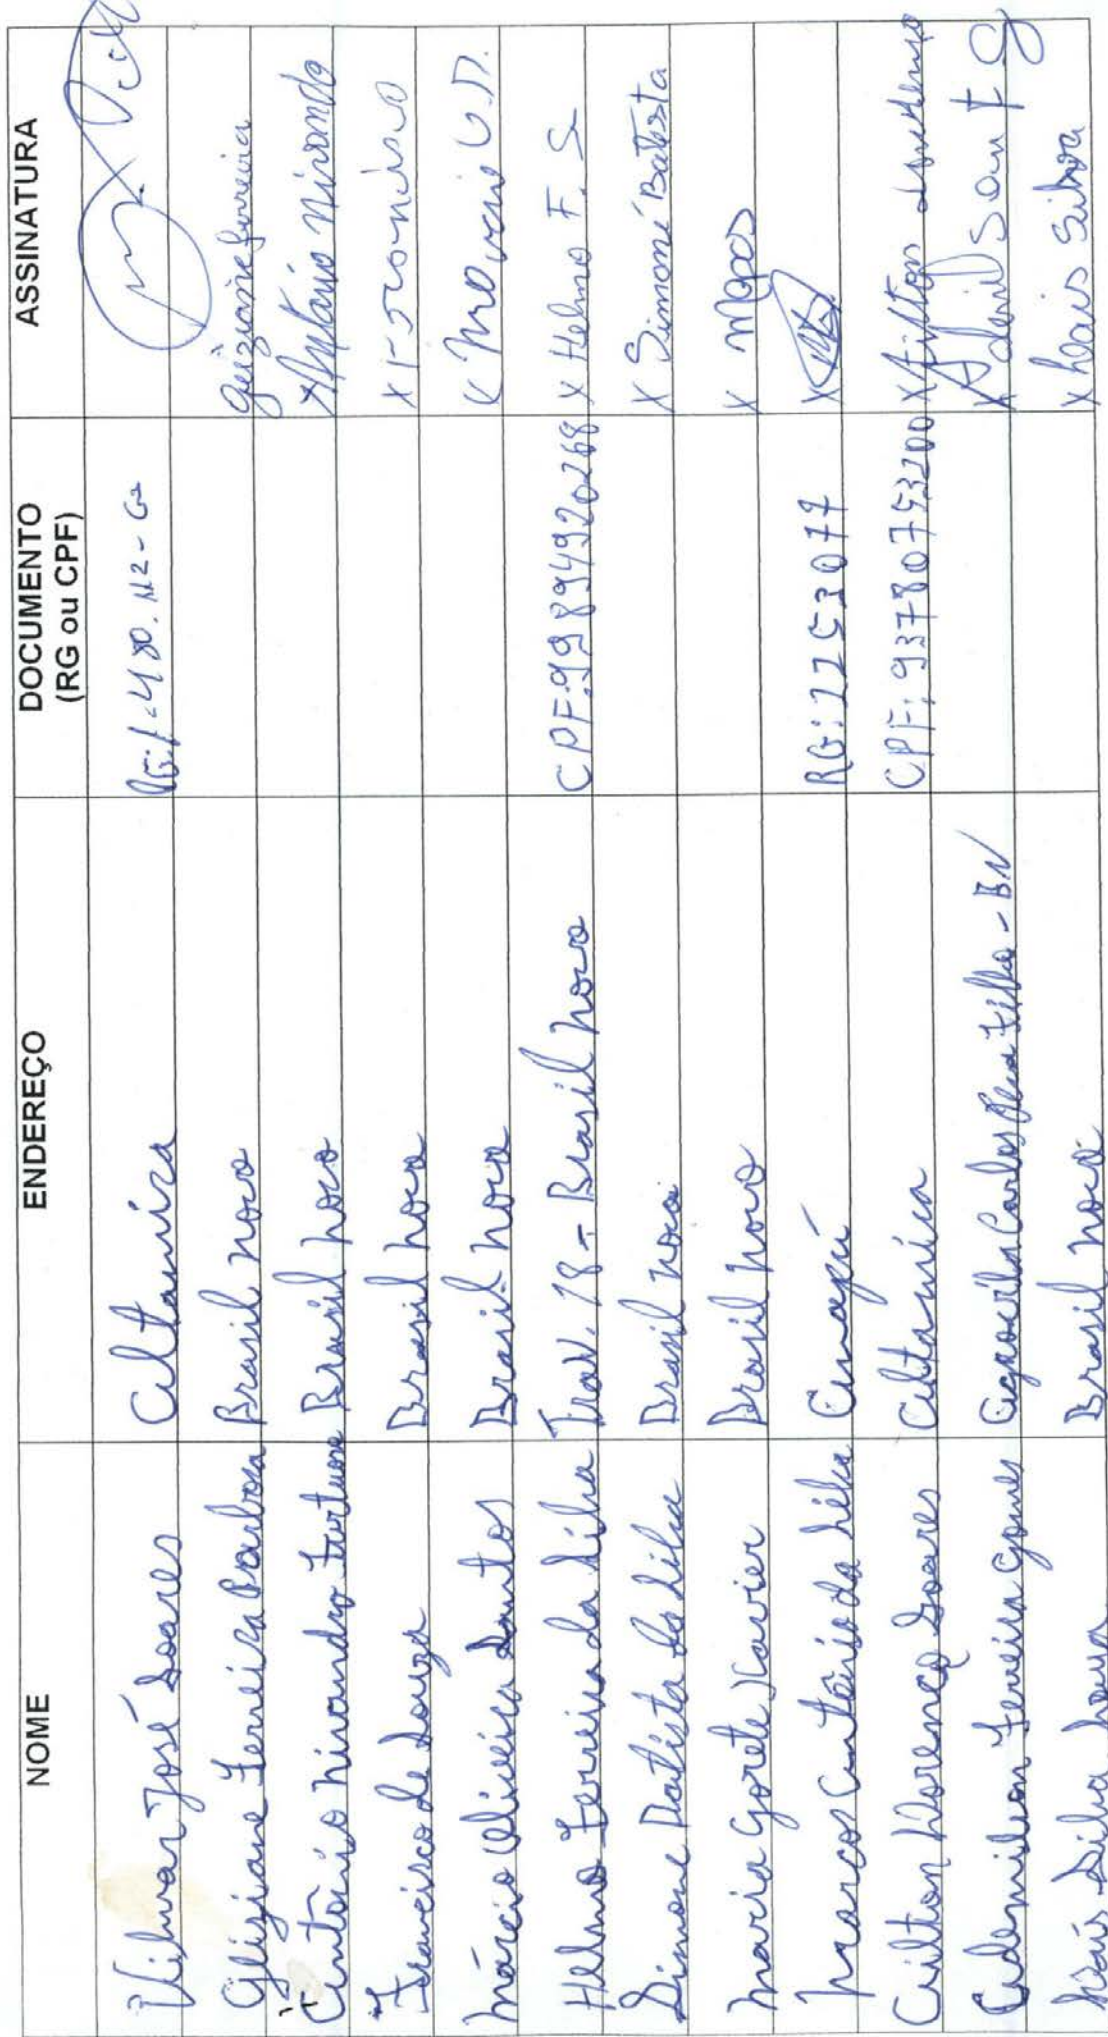 NOME ENDEREÇO DOCUMENTO (RG ou CPF) ASSINATURA
Vilmar José Soares Altamira
Gleiziane Ferreira Barbosa Brasil novo Gleiziane ferreira
Antônio Miranda Brasil novo Antônio Miranda
Francisco de Souza Brasil novo X Francisco
Márcio Oliveira Santos Brasil novo
Helmo Ferreira da Silva Trav. 18 - Brasil novo CPF: 99894920268 X Helmo F. S
Simone Batista da Silva Brasil novo X Simone Batista
Maria Gorete Xavier Brasil novo X
Marcos Antônio da Silva RG: 2253077 X
Ailton Lourenço Soares Altamira CPF: 93780753200 X Ailton
Ademilson Ferreira Gomes Agrovila Carlos Pena Filho - BN X
Laís Silva Brasil novo X Lais Silva